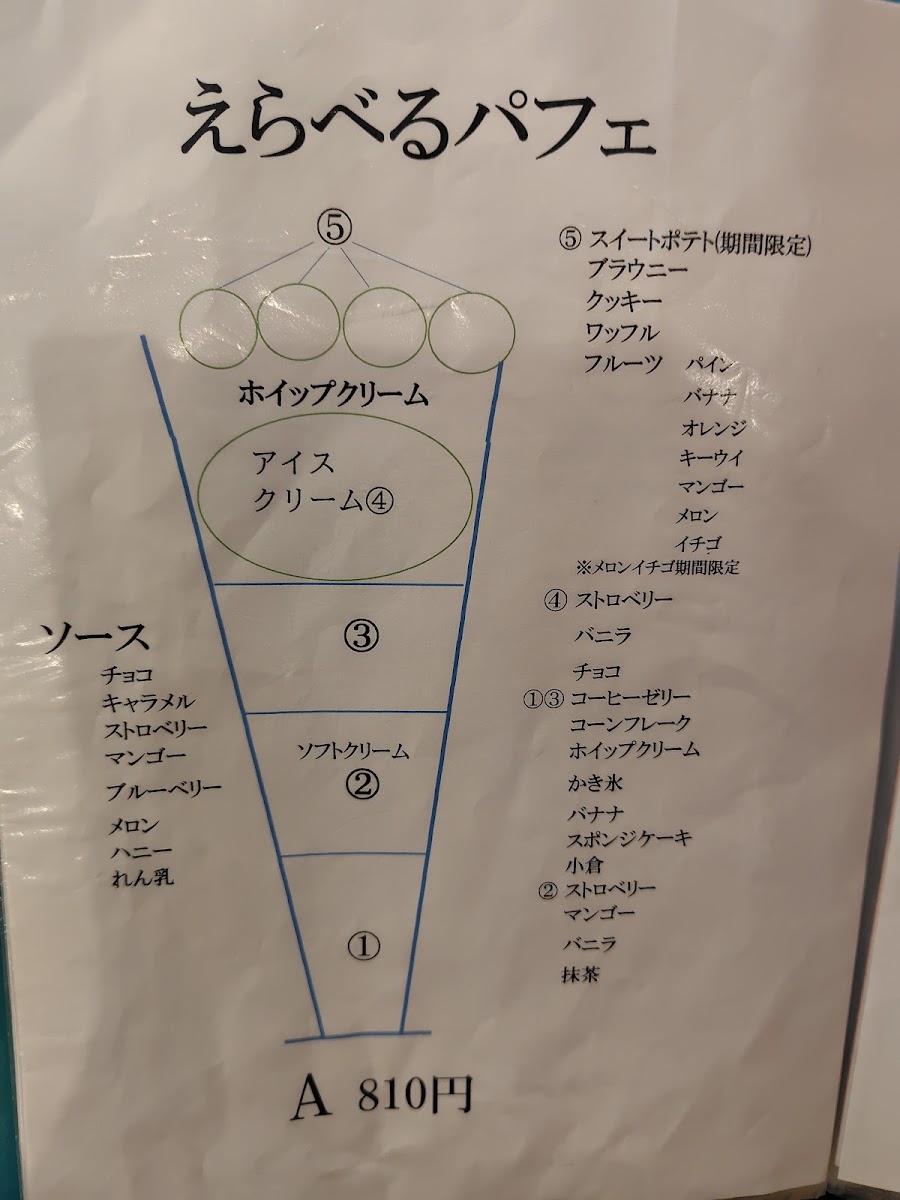 えらべるパフェ
⑤
ホイップクリーム
アイス
クリーム④
③
ソフトクリーム
②
①
ソース
チョコ
キャラメル
ストロベリー
マンゴー
ブルーベリー
メロン
ハニー
れん乳
⑤ スイートポテト(期間限定)
ブラウニー
クッキー
ワッフル
フルーツ パイン
バナナ
オレンジ
キーウイ
マンゴー
メロン
イチゴ
※メロンイチゴ期間限定
④ ストロベリー
バニラ
チョコ
①③ コーヒーゼリー
コーンフレーク
ホイップクリーム
かき氷
バナナ
スポンジケーキ
小倉
② ストロベリー
マンゴー
バニラ
抹茶
A 810円